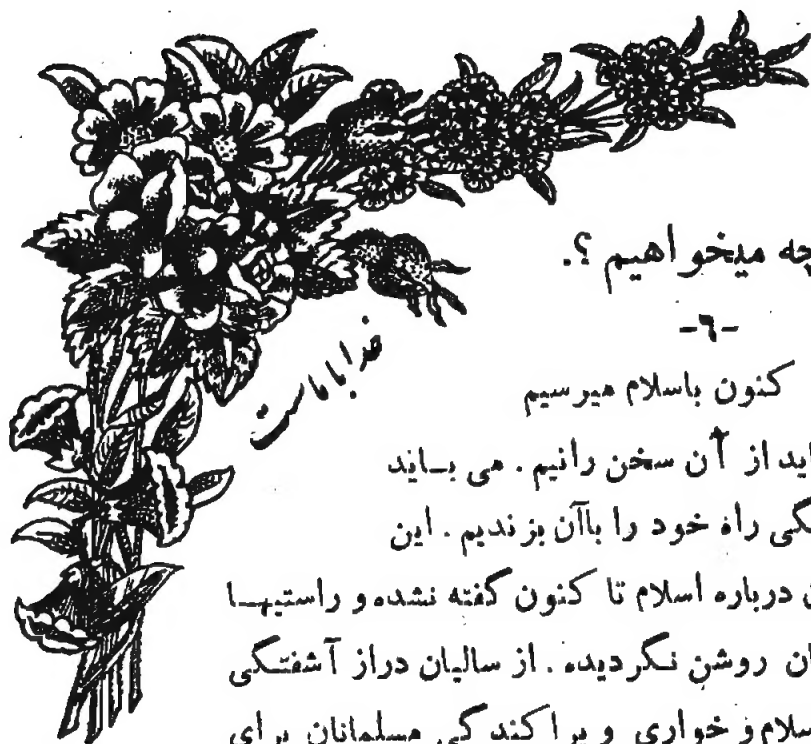 چه میخواهیم ؟.
-٦-
خدا با ماست
کنون باسلام میرسیم
از آن سخن رانیم . می بـاید
راه خود را باآن بزندیم . این
درباره اسلام تا کنون گفته نشده و راستیهـا
روشن نـگردیده . از سالیان دراز آشفتـگی
و خواری و پراکندگی مسلمانان برای